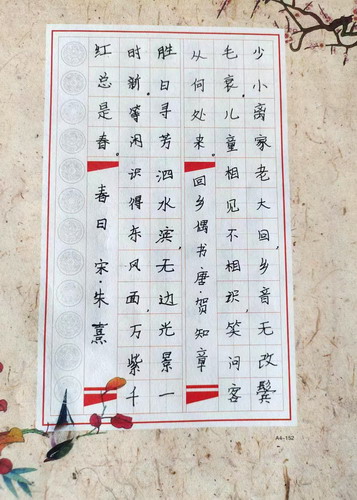 少小离家老大回,乡音无改鬓
毛衰。儿童相见不相识,笑问客
从何处来。回乡偶书唐·贺知章
胜日寻芳泗水滨,无边光景一
时新。等闲识得东风面,万紫千
红总是春。春日宋·朱熹
A4-152